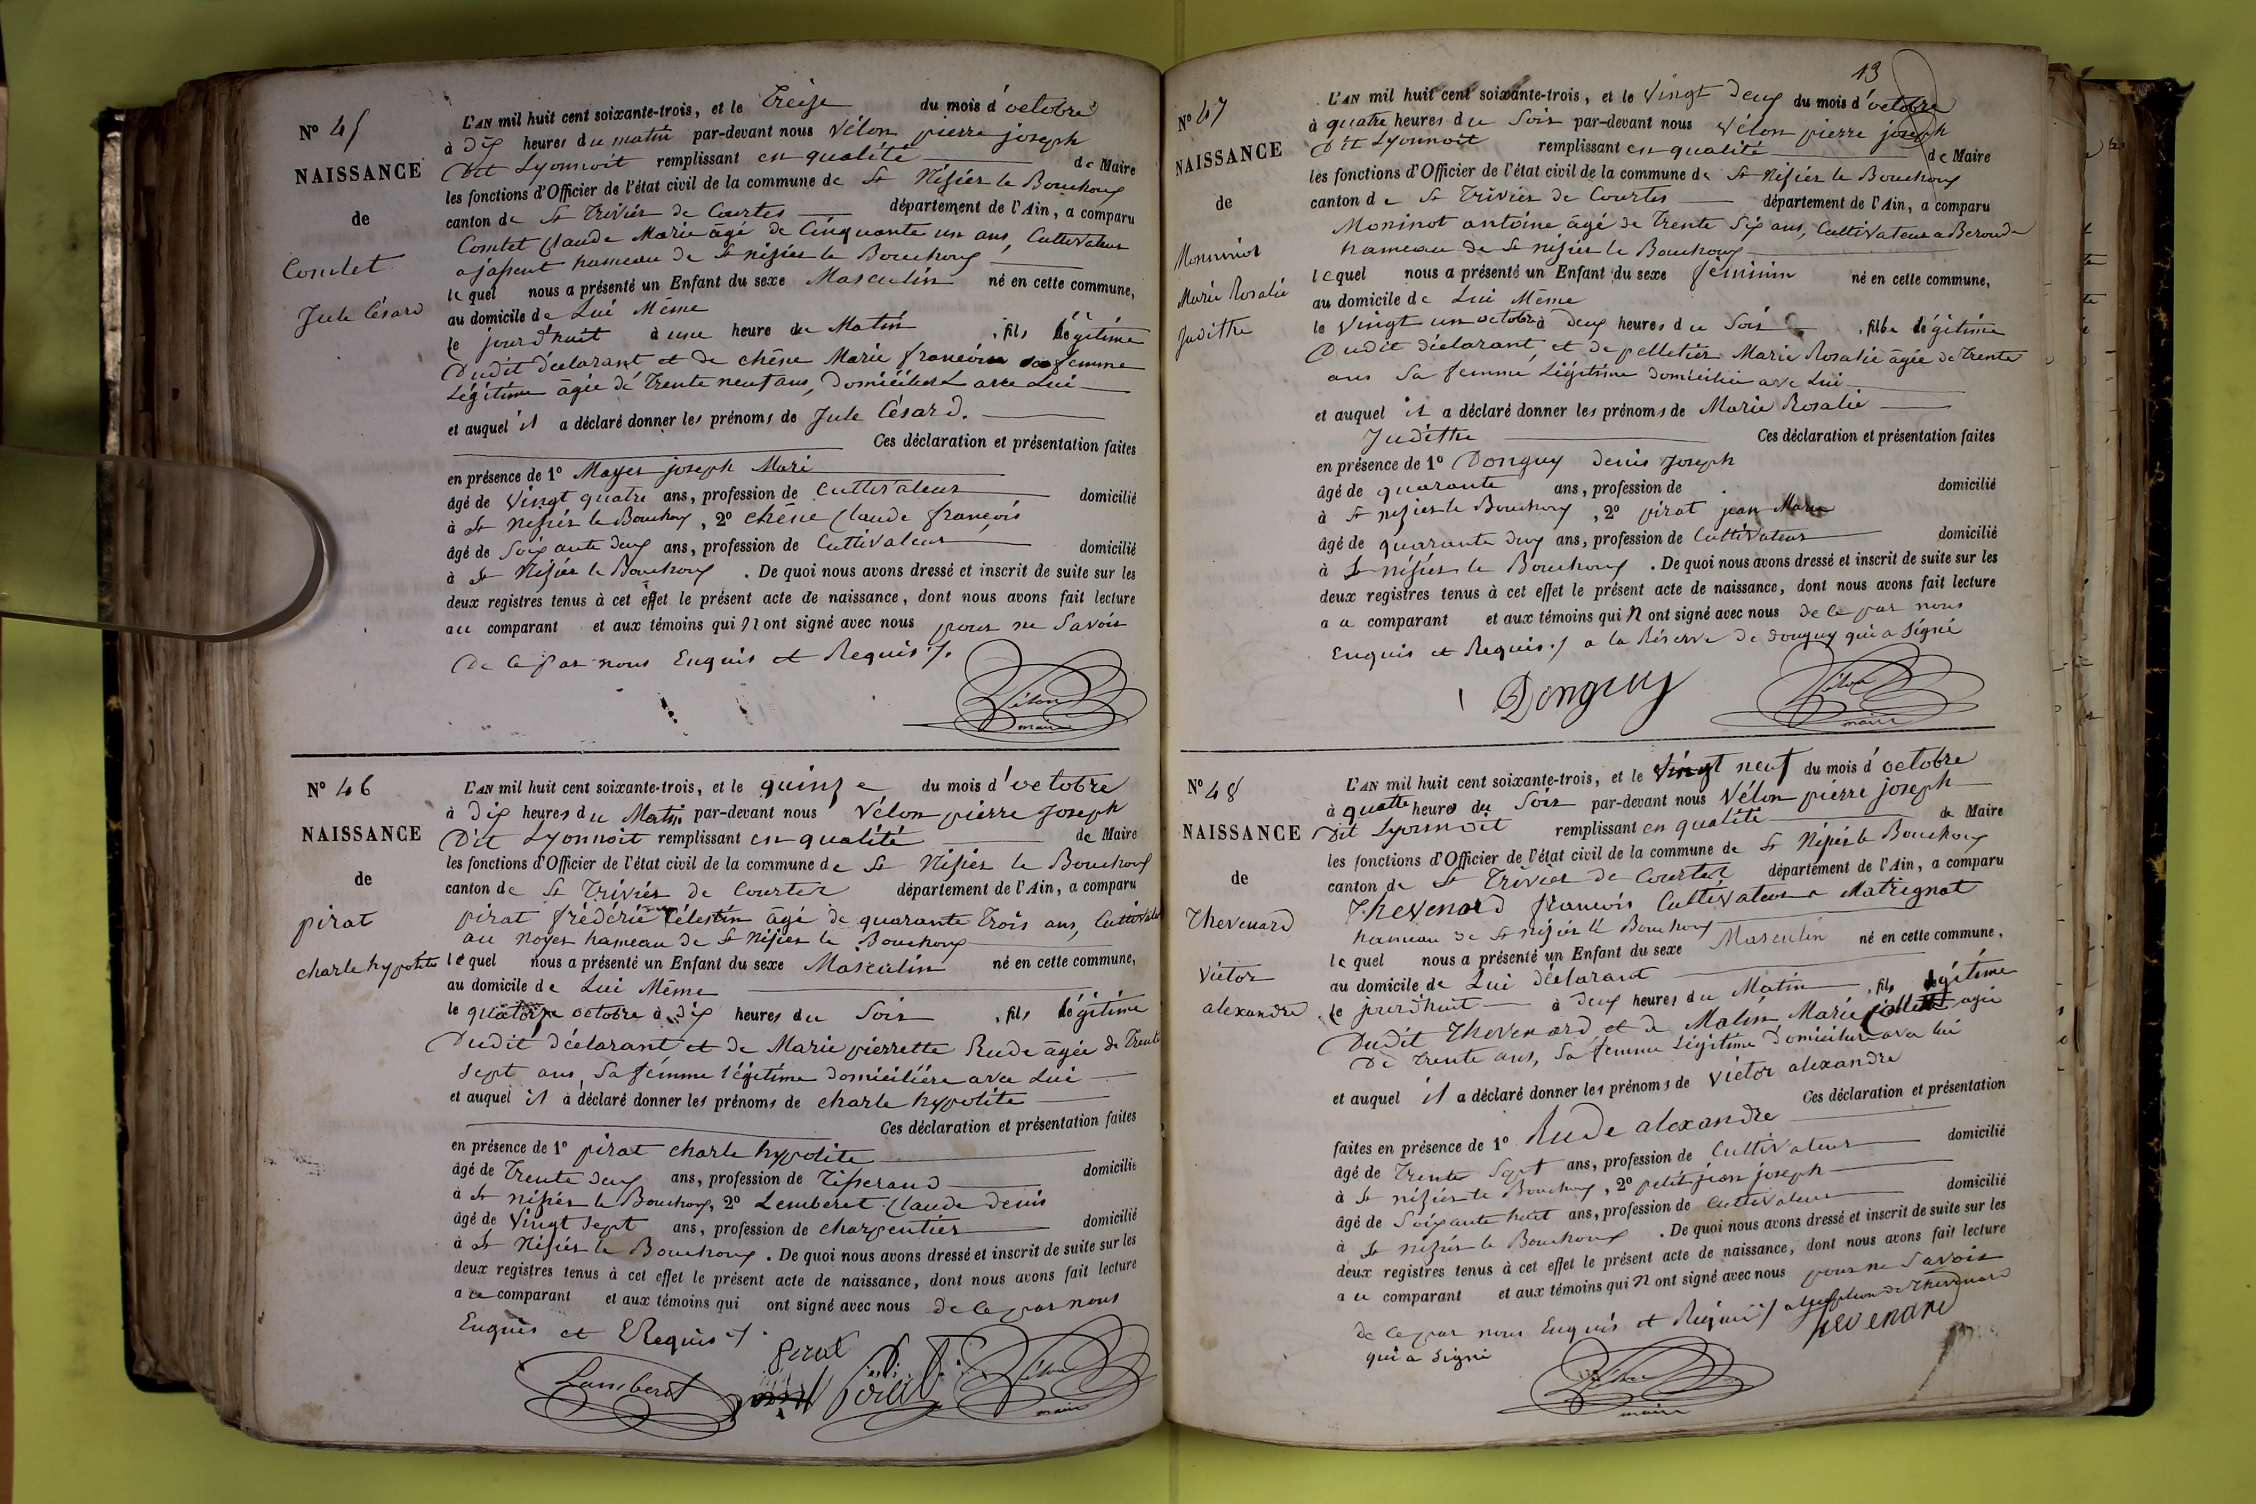 N° 45
NAISSANCE
de
Comtet
Jule Césard
L'AN mil huit cent soixante-trois, et le Treize du mois d'octobre
à Dix heures du matin par-devant nous Vélon pierre joseph
Dit Lyonnoit remplissant en qualité de Maire
les fonctions d'Officier de l'état civil de la commune de St Nisier le Bouchoux
canton de St Trivier de Courtes département de l'Ain, a comparu
Comtet Claude Marie âgé de Cinquante un ans, Cultivateur
a hameau de St nisier le Bouchoux
lequel nous a présenté un Enfant du sexe Masculin né en cette commune,
au domicile de Lui Même
le jourd'huit à une heure du Matin, fils légitime
Dudit déclarant et de chêne Marie françoise sa femme
Légitime âgée de Trente neuf ans, Domiciliée avec Lui
et auquel il a déclaré donner les prénoms de Jule Césard.
Ces déclaration et présentation faites
en présence de 1° Mayer joseph Mari
âgé de Vingt quatre ans, profession de Cultivateur domicilié
à St Nisier le Bouchoux, 2° chêne Claude françois
âgé de Soixante deux ans, profession de Cultivateur domicilié
à St Nisier le Bouchoux. De quoi nous avons dressé et inscrit de suite sur les
deux registres tenus à cet effet le présent acte de naissance, dont nous avons fait lecture
au comparant et aux témoins qui n ont signé avec nous pour ne Savoir
De ce par nous Enquis et Requis ./.
Vélon
maire
N° 46
NAISSANCE
de
pirat
charle hypolite
L'AN mil huit cent soixante-trois, et le quinze du mois d'octobre
à Dix heures du Matin par-devant nous Vélon pierre Joseph
Dit Lyonnoit remplissant en qualité de Maire
les fonctions d'Officier de l'état civil de la commune de St Nisier le Bouchoux
canton de St Trivier de Courtes département de l'Ain, a comparu
pirat frédéric Célestin âgé de quarante Trois ans, Cultivateur
au Noyer hameau de St Nisier le Bouchoux
lequel nous a présenté un Enfant du sexe Masculin né en cette commune,
au domicile de Lui Même
le quatorze octobre à dix heures du Soir, fils légitime
Dudit déclarant et de Marie pierrette Rude âgée de Trente
Sept ans, Sa fémme légitime domiciliére avec Lui
et auquel il à déclaré donner les prénoms de charle hypolite
Ces déclaration et présentation faites
en présence de 1° pirat charle hypolite
âgé de Trente deux ans, profession de Tisserand domicilié
à St nisier le Bouchoux, 2° Lemberet Claude denis
âgé de Vingt sept ans, profession de charpentier domicilié
à St Nisier le Bouchoux. De quoi nous avons dressé et inscrit de suite sur les
deux registres tenus à cet effet le présent acte de naissance, dont nous avons fait lecture
au comparant et aux témoins qui ont signé avec nous de ce par nous
Enquis et Requis ./.
Lamberet pirat Vélon
maire
13
N° 47
NAISSANCE
de
Monninot
Marie Rosalie
Judithe
L'AN mil huit cent soixante-trois, et le Vingt deux du mois d'octobre
à quatre heures du Soir par-devant nous Vélon pierre joseph
Dit Lyonnoit remplissant en qualité de Maire
les fonctions d'Officier de l'état civil de la commune de St Nisier le Bouchoux
canton de St Trivier de Courtes département de l'Ain, a comparu
Moninot antoine âgé de Trente Six ans, Cultivateur a
hameau de St nisier le Bouchoux
lequel nous a présenté un Enfant du sexe féminin né en cette commune,
au domicile de Lui Même
le Vingt un octobre à deux heures du Soir, fille légitime
Dudit déclarant et de pelletier Marie Rosalie âgée de Trente
ans Sa femme Légitime domiciliée avec Lui
et auquel il a déclaré donner les prénoms de Marie Rosalie
Judithe Ces déclaration et présentation faites
en présence de 1° Donguy denis Joseph
âgé de quarante ans, profession de domicilié
à St nizier le Bouchoux, 2° pirat jean Marie
âgé de quarante deux ans, profession de Cultivateur domicilié
à St nisier le Bouchoux. De quoi nous avons dressé et inscrit de suite sur les
deux registres tenus à cet effet le présent acte de naissance, dont nous avons fait lecture
au comparant et aux témoins qui n ont signé avec nous de ce par nous
Enquis et Requis ./ a la Réserve de Donguy qui a Signé
Donguy Vélon
maire
N° 48
NAISSANCE
de
Thevenard
Victor
alexandre
L'AN mil huit cent soixante-trois, et le Vingt neuf du mois d'octobre
à quatre heures du Soir par-devant nous Vélon pierre joseph
Dit Lyonnoit remplissant en qualité de Maire
les fonctions d'Officier de l'état civil de la commune de St Nisier le Bouchoux
canton de St Trivier de Courtes département de l'Ain, a comparu
Thevenard francois Cultivateur a Matrignat
hameau de St nisier le Bouchoux
lequel nous a présenté un Enfant du sexe Masculin né en cette commune,
au domicile de Lui déclarant
le jourd'huit à deux heures du Matin, fils légitime
Dudit Thevenard et de Matin Marie agée
De trente ans, Sa femme Légitime Domiciliée avec lui
et auquel il a déclaré donner les prénoms de Victor alexandre
Ces déclaration et présentation
faites en présence de 1° Rude alexandre
âgé de Trente Sept ans, profession de Cultivateur domicilié
à St nisier le Bouchoux, 2° petit jean joseph
âgé de Soixante huit ans, profession de Cultivateur domicilié
à St nizier le Bouchoux. De quoi nous avons dressé et inscrit de suite sur les
deux registres tenus à cet effet le présent acte de naissance, dont nous avons fait lecture
au comparant et aux témoins qui n ont signé avec nous pour ne Savoir
de ce par nous Enquis et Requis ./ a de Thevenard
qui a Signé
Thevenard
Vélon
maire